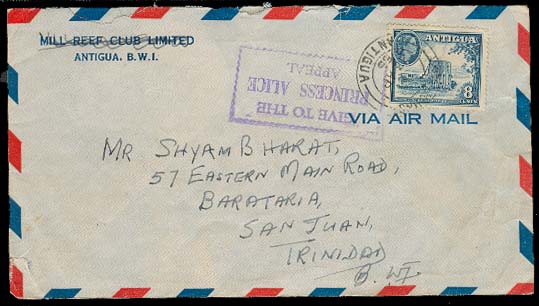 MILL REEF CLUB LIMITED
ANTIGUA. B.W.I.
GIVE TO THE
PRINCESS ALICE
APPEAL
ANTIGUA
ANTIGUA
8
CENTS
VIA AIR MAIL
MR SHYAM BHARAT,
57 EASTERN MAIN ROAD,
BARATARIA,
SAN JUAN,
TRINIDAD
B.W.I.